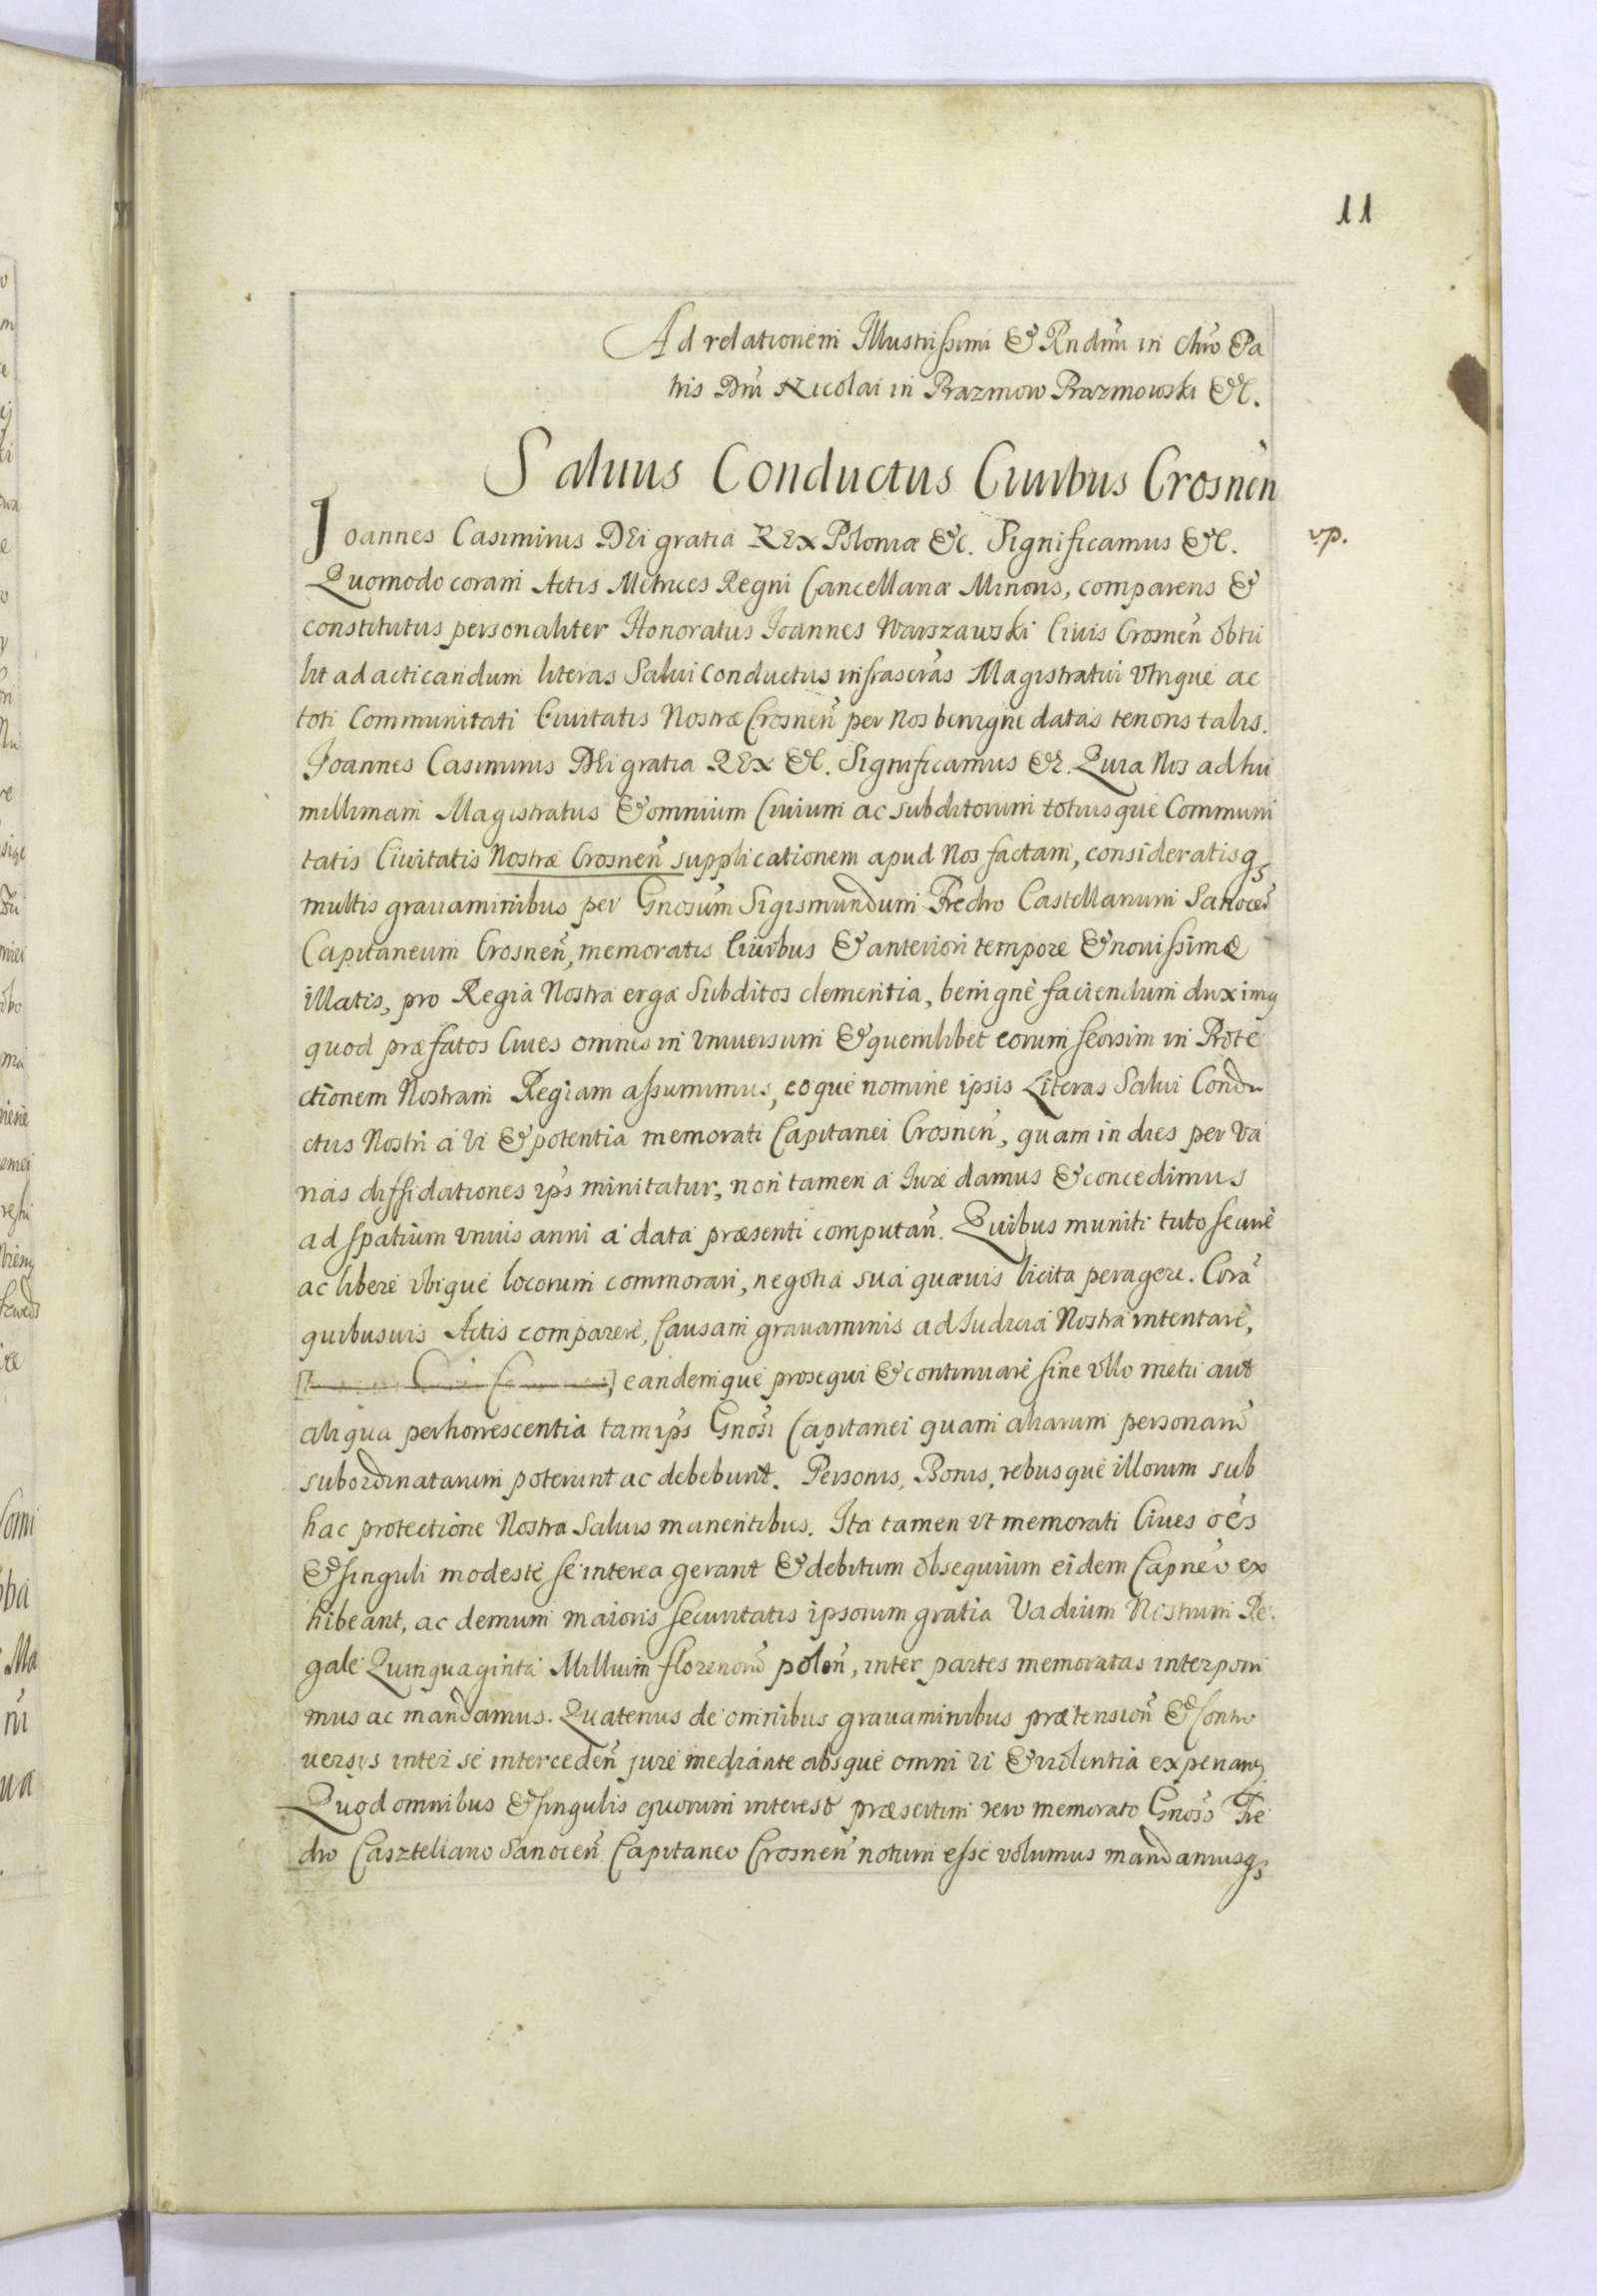 11
Ad relationem Illustrissimi & Rndmi in Chro Pa
tris Dni Nicolai in Prazmow Prazmowski &c.
Saluus Conductus Ciuibus Crosnen
Joannes Casimirus DEi gratia REx Poloniæ &c. Significamus &c.
vp.
Quomodo coram Actis Metrices Regni Cancellariæ Minoris, comparens &
constitutus personaliter Honoratus Joannes Warszawski Ciuis Crosnen obtu
lit ad acticandum literas Salui Conductus infrascras Magistratui vtrique ac
toti Communitati Ciuitatis Nostræ Crosnen per Nos benigne datas tenoris talis.
Joannes Casimirus DEi gratia REx &c. Significamus &c. Quia Nos ad hu
millimam Magistratus & omnium Ciuium ac subditorum totiusque Communi
tatis Ciuitatis Nostræ Crosnen supplicationem apud Nos factam, consideratisq
multis grauaminibus per Gnosum Sigismundum Fredro Castellanum Sanocen
Capitaneum Crosnen, memoratis Ciuibus & anteriori tempore & nouissimæ
illatis, pro Regia Nostra erga Subditos clementia, benigne faciendum duximg
quod præfatos Ciues omnes in vniuersum & quemlibet eorum seorsim in Prote
ctionem Nostram Regiam assumimus, eoque nomine ipsis Literas Salui Condu
ctus Nostri a vi & potentia memorati Capitanei Crosnen, quam in dies per va
nas diffidationes ips minitatur, non tamen a Iure damus & concedimus
ad spatium vnius anni a data præsenti computan. Quibus muniti tuto secure
ac libere vbique locorum commorari, negotia sua quæuis licita peragere. Cora
quibusuis Actis comparere, Causam grauaminis ad Iudicia Nostra intentare,
eandemque prosequi & continuare sine vllo metu aut
aliqua perhorrescentia tam ips Gnosi Capitanei quam aliarum personaru
subordinatarum poterunt ac debebunt. Personis, Bonis, rebusque illorum sub
hac protectione Nostra saluis manentibus. Ita tamen vt memorati Ciues oes
& singuli modeste se interea gerant & debitum obsequium eidem Capneo ex
hibeant, ac demum maioris securitatis ipsorum gratia Vadium Nostrum Re
gale Quinquaginta Millium florenoru polon, inter partes memoratas interponi
mus ac mandamus. Quatenus de omnibus grauaminibus prætension & Contro
uersis inter se interceden jure mediante absque omni vi & violentia experiang
Quod omnibus & singulis quorum interest præsertim vero memorato Gnoso Fre
dro Caszteliano Sanocen Capitaneo Crosnen notum esse volumus mandamusq